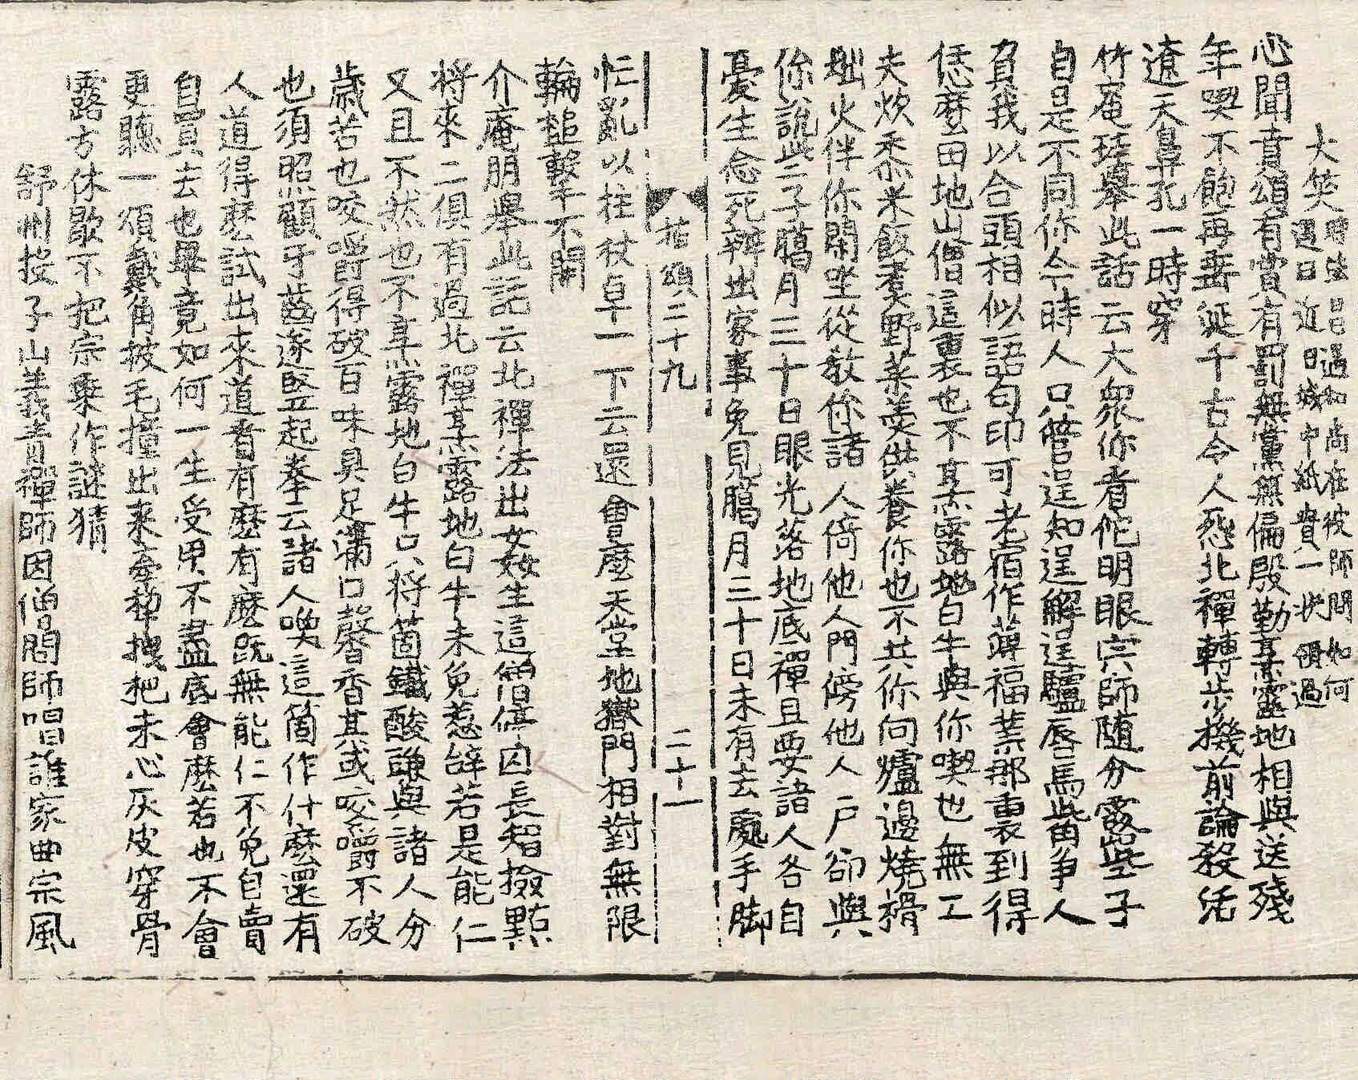 大笑時法昌遇和尚在彼師問如何
遇曰近日城中紙貴一狀領過
心聞賁頌有賞有罰無黨無偏殷勤烹露地相與送殘
年喫不飽再垂涎千古令人恐北禪轉步機前論殺活
遼天鼻孔一時穿
竹庵珪擧此話云大衆你看佗明眼宗師随分露些子
自是不同你今時人只管逞知逞解逞驢唇馬觜爭人
負我以合頭相似語句印可老宿作薄福業那裏到得
恁麽田地山僧這裏也不烹露地白牛與你喫也無工
夫炊黍米飯煑野菜羮供養你也不共你向爐邊燒榾
柮火伴你閑坐從教你諸人倚他人門傍他人戶卻與
你說些子臈月三十日眼光落地底禪且要諸人各自
憂生念死辦出家事免見臈月三十日未有去處手脚
拈頌二十九 二十一
忙亂以柱杖卓一下云還會麽天堂地獄門相對無限
輪鎚擊不開
介庵朋擧此話云北禪法出姦生這僧停囚長智撿點
将來二俱有過北禪烹露地白牛未免惹辞若是能仁
又且不然也不烹露地白牛只将箇鐵酸豏與諸人分
歲苦也咬嚼得破百味具足滿口馨香其或咬嚼不破
也須照顧牙齒遂竪起拳云諸人喚這箇作什麽還有
人道得麽試出來道看有麽有麽旣無能仁不免自賣
自買去也畢竟如何一生受用不盡底會麽若也不會
更聽一頌戴角披毛撞出来牽犂拽杷未心灰皮穿骨
露方休歇不把宗乗作謎猜
舒州投子山義青禪師因僧問師唱誰家曲宗風